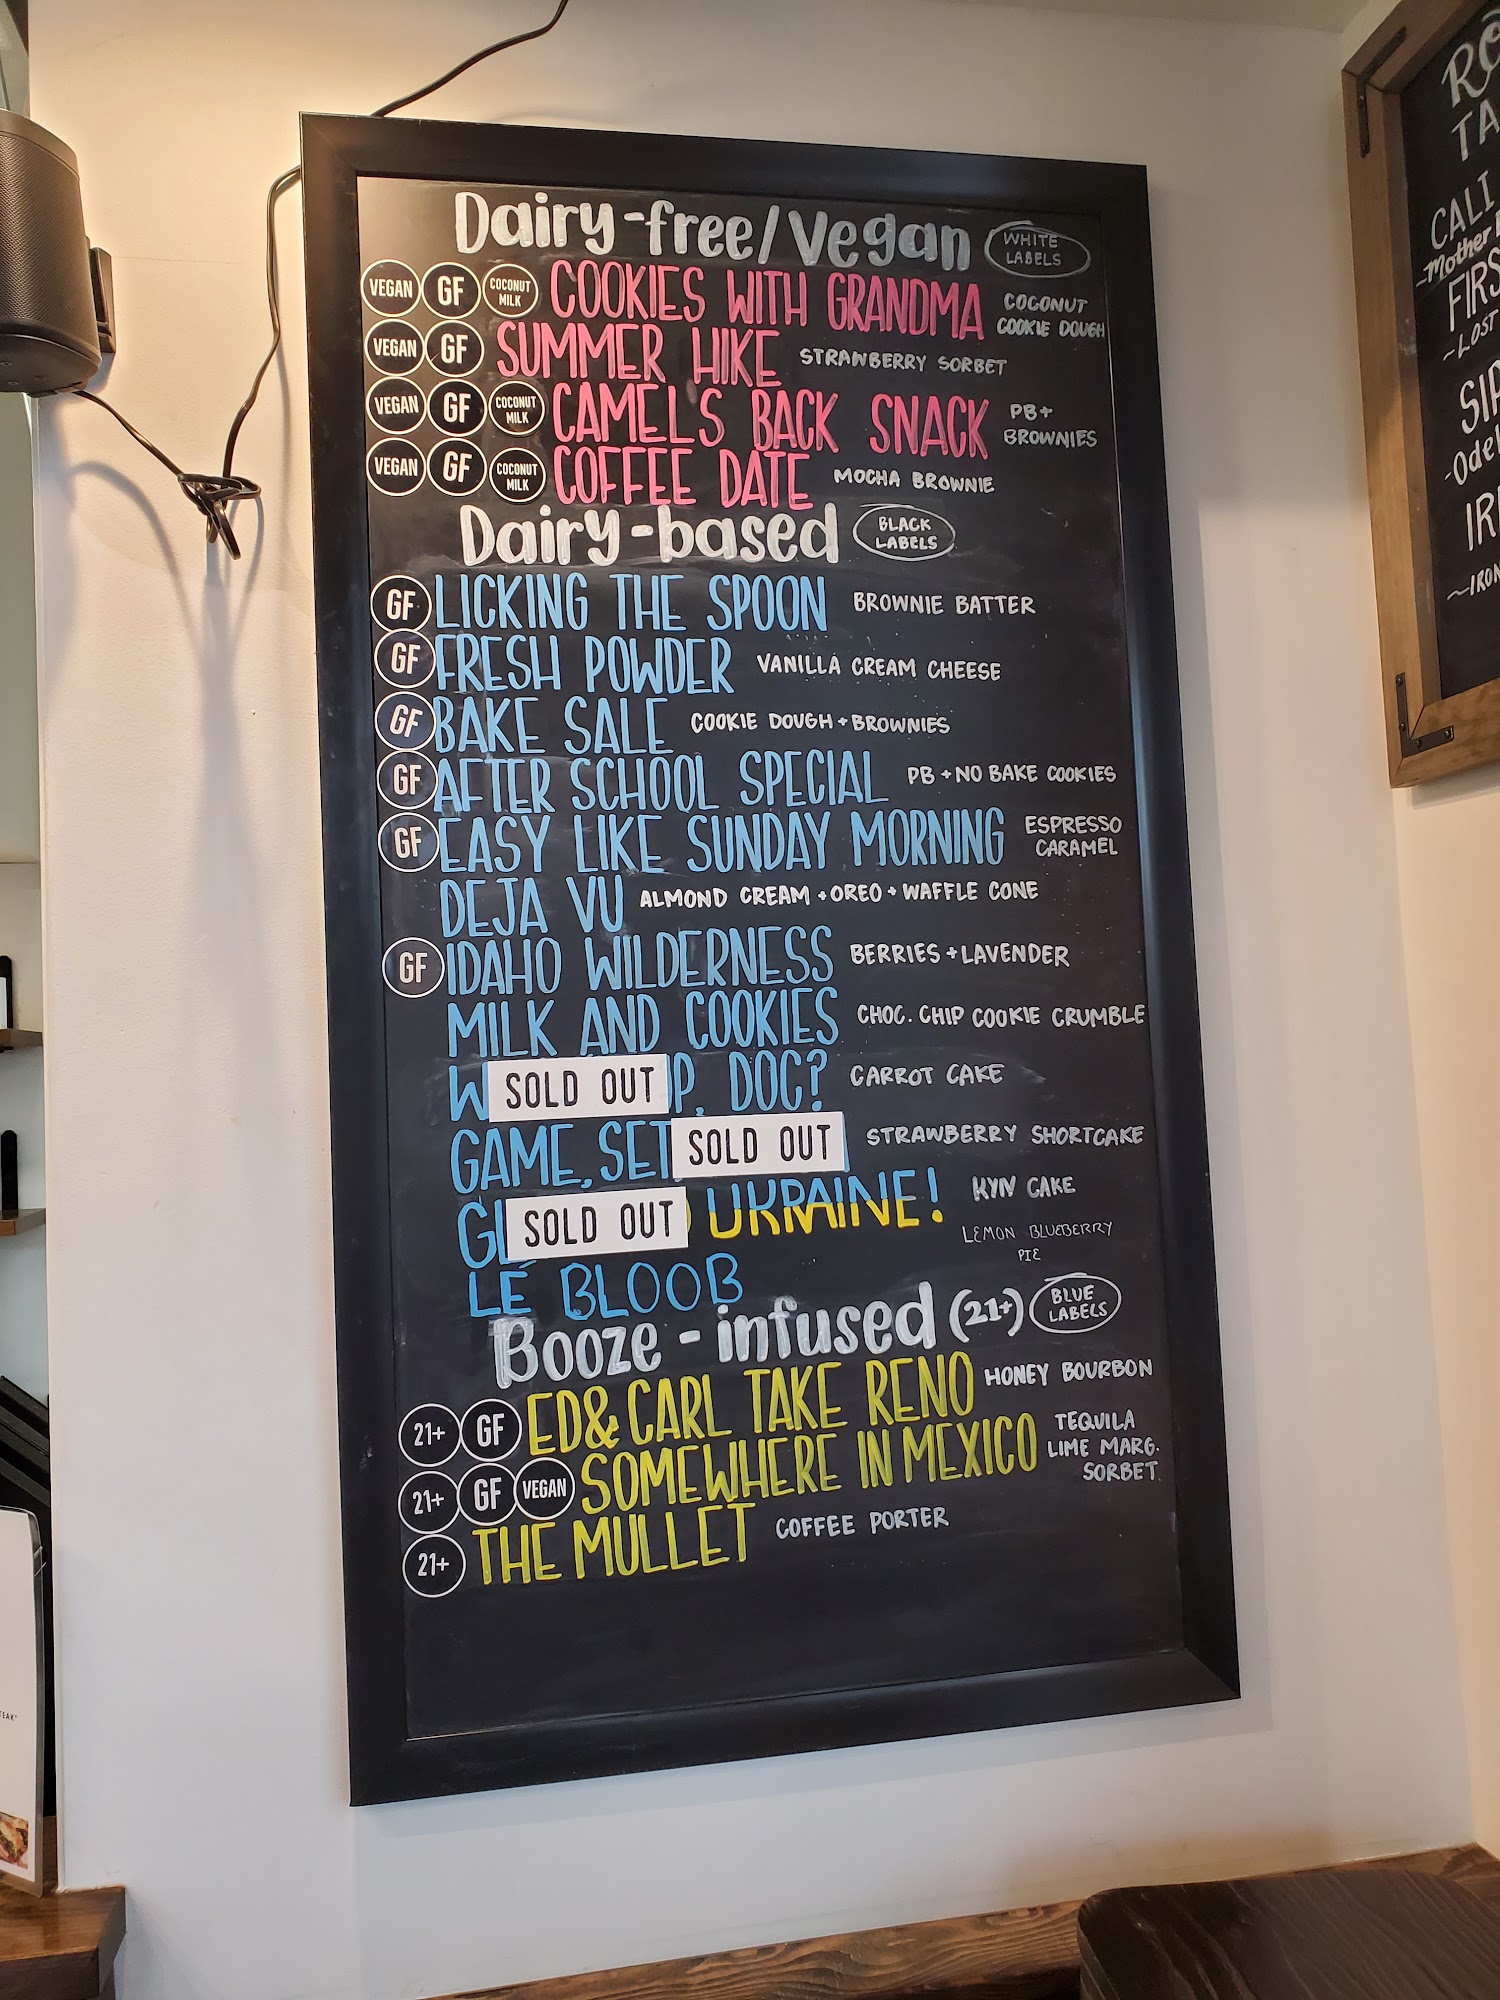 Dairy-free/Vegan WHITE LABELS
VEGAN GF COCONUT MILK COOKIES WITH GRANDMA COCONUT COOKIE DOUGH
VEGAN GF SUMMER HIKE STRAWBERRY SORBET
VEGAN GF COCONUT MILK CAMELS BACK SNACK PB+ BROWNIES
VEGAN GF COCONUT MILK COFFEE DATE MOCHA BROWNIE
Dairy-based BLACK LABELS
GF LICKING THE SPOON BROWNIE BATTER
GF FRESH POWDER VANILLA CREAM CHEESE
GF BAKE SALE COOKIE DOUGH + BROWNIES
GF AFTER SCHOOL SPECIAL PB + NO BAKE COOKIES
GF EASY LIKE SUNDAY MORNING ESPRESSO CARAMEL
DEJA VU ALMOND CREAM + OREO + WAFFLE CONE
GF IDAHO WILDERNESS BERRIES + LAVENDER
MILK AND COOKIES CHOC. CHIP COOKIE CRUMBLE
W SOLD OUT P, DOC? CARROT CAKE
GAME, SET SOLD OUT STRAWBERRY SHORTCAKE
SOLD OUT UKRAINE! KYIV CAKE
LE BLOOB LEMON BLUEBERRY PIE
Booze-infused (21+) BLUE LABELS
21+ GF ED & CARL TAKE RENO HONEY BOURBON
21+ GF VEGAN SOMEWHERE IN MEXICO TEQUILA LIME MARG. SORBET
21+ THE MULLET COFFEE PORTER
TA
CALI
Mother
FIRS
~LOST
SIP
-Odel
IR
~IRON
TEAK"